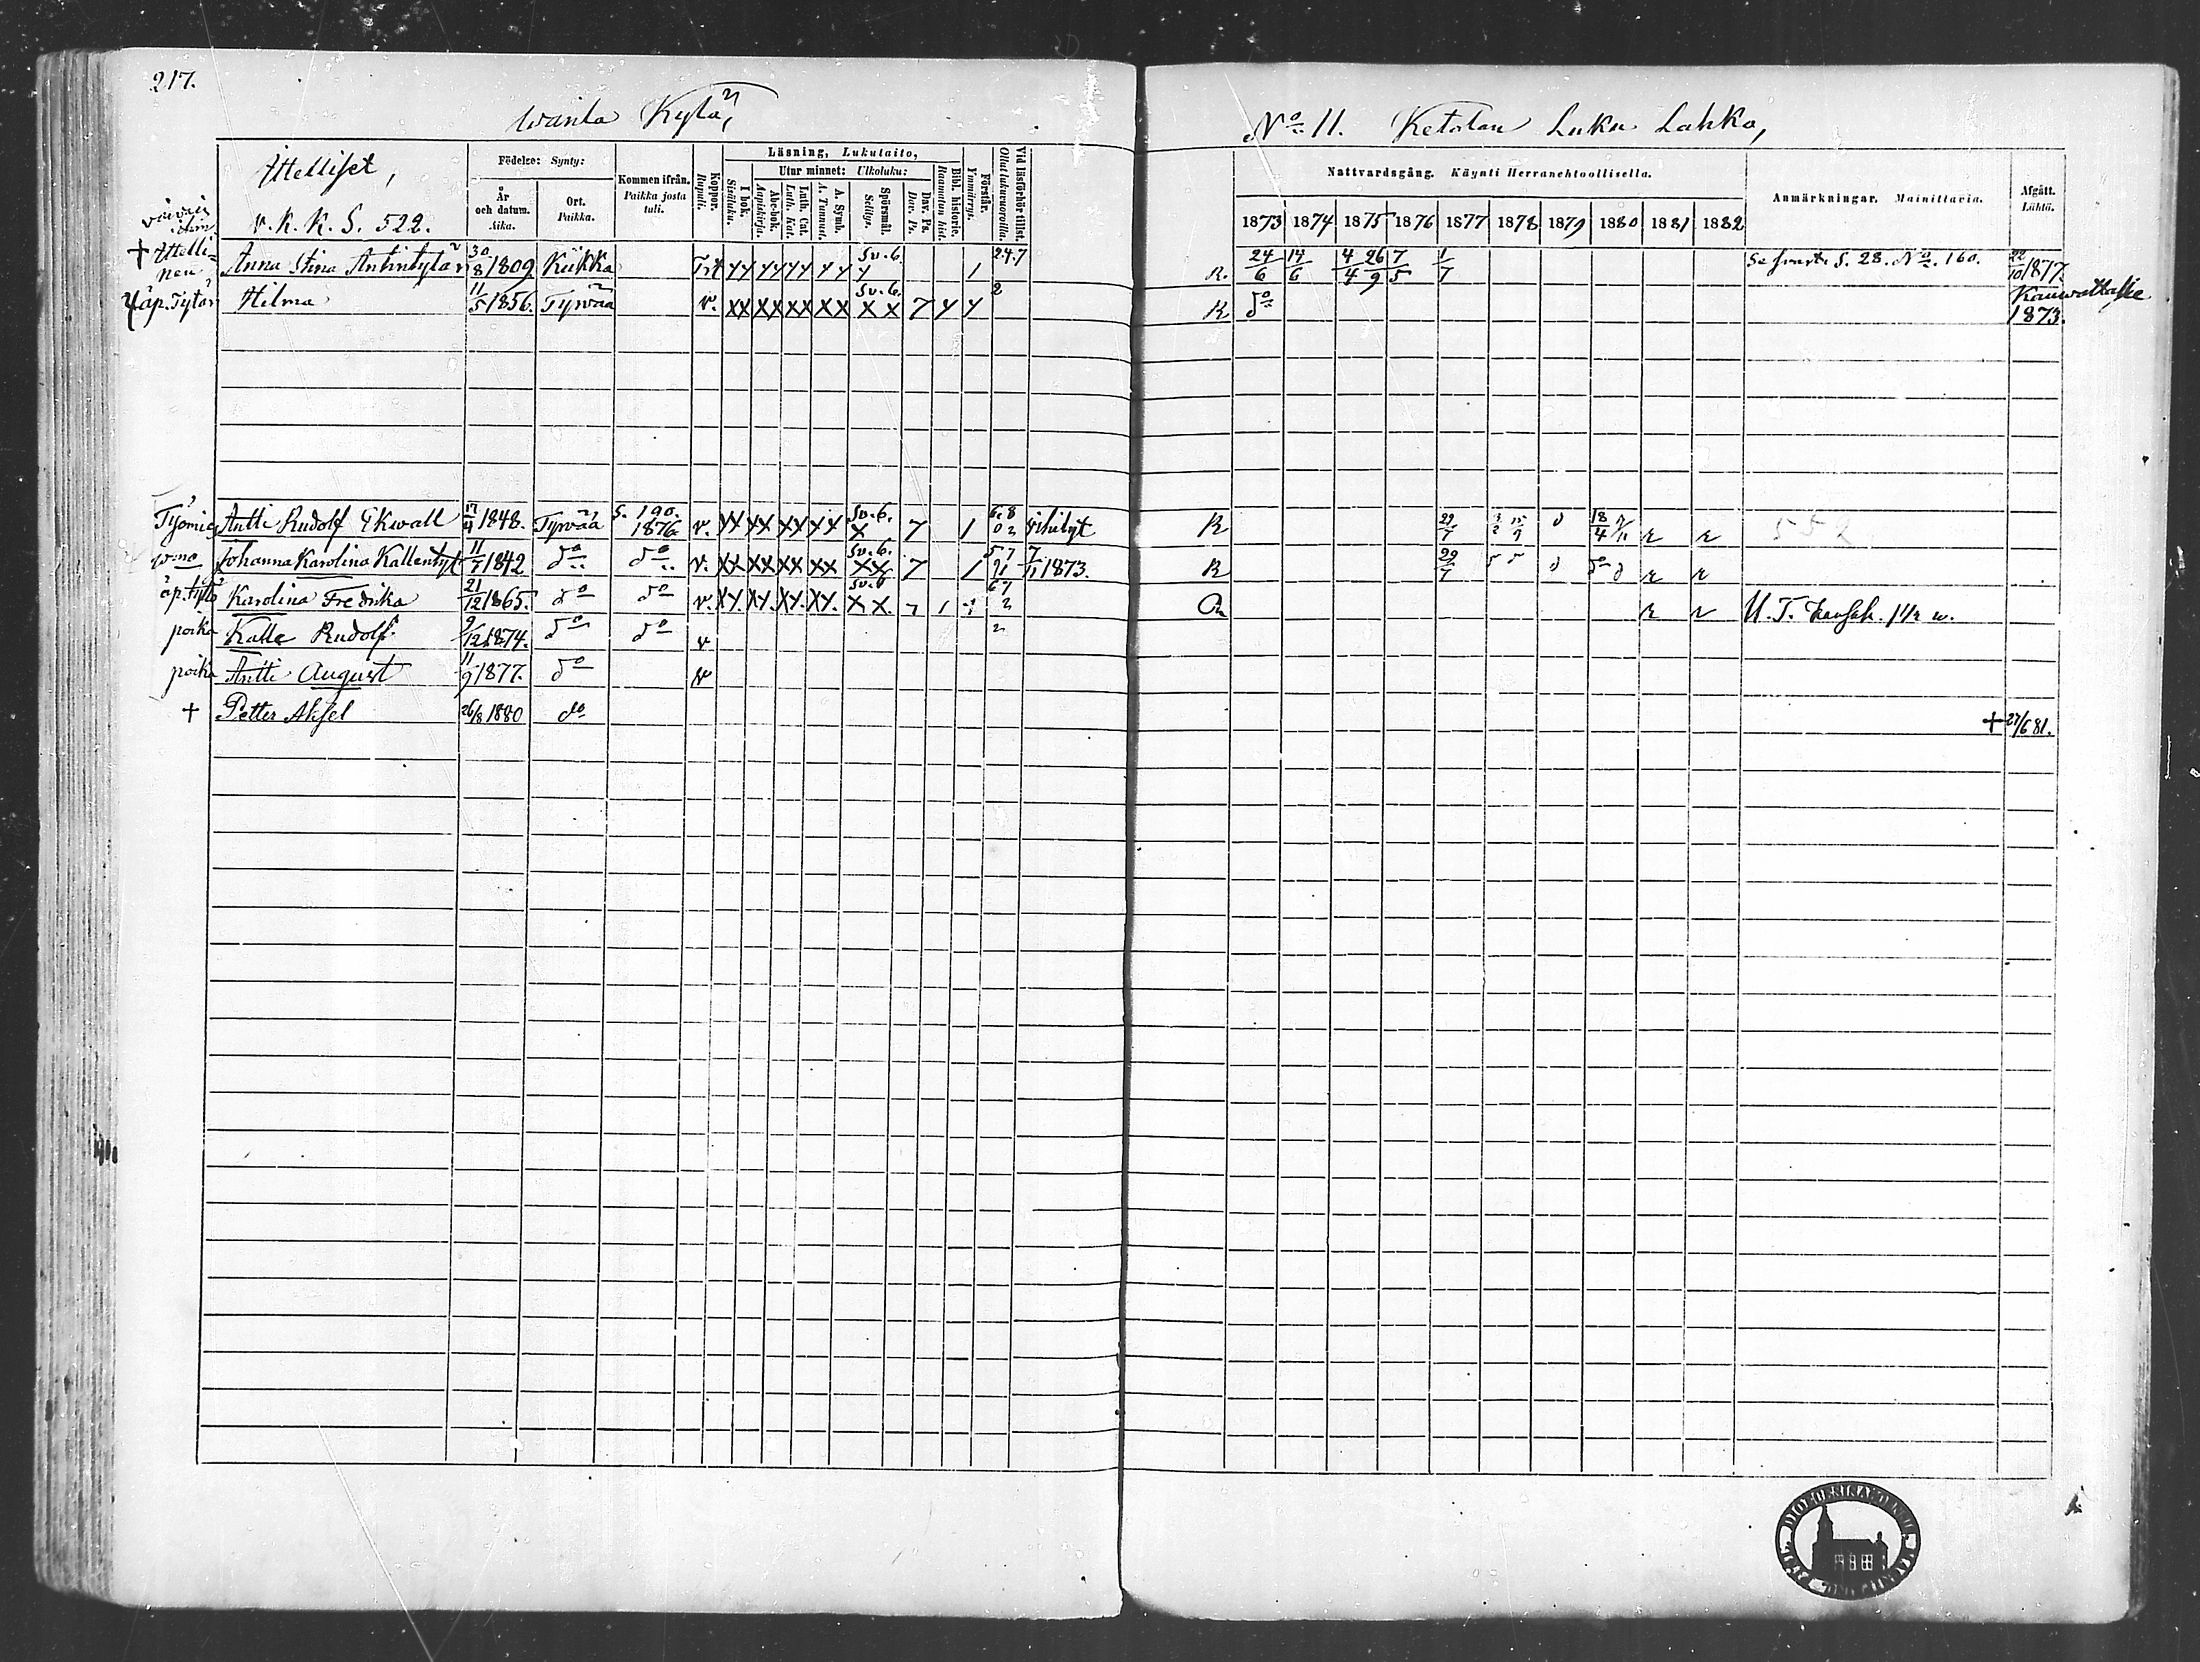 217.
Wanta Kylä,
No 11. Ketolan Luku Lahko,
Ittelliset,
v. K. K. S. 522.
Födelse: Synty:
År och datum. Aika.
Ort. Paikka.
Kommen ifrån. Paikka josta tuli.
Koppor. Rupuli.
Läsning, Lukutaito,
I bok. Sisäluku.
Utur minnet: Ulkoluku:
Abc-bok. Aapiskirja.
Luth. Cat. Luth. Kat.
A. Symb. A. Tunnust.
Spörsmål. Selitys.
Dav. Ps. Dav. Ps.
Bibl. historie. Raamatun hist.
Förstår. Ymmärrys.
Vid läsförhör tillst. Ollut lukuvuoroilla.
Nattvardsgång. Käynti Herranehtoollisella.
1873 1874 1875 1876 1877 1878 1879 1880 1881 1882
Anmärkningar. Mainittavia.
Afgått. Lähtö.
+ Ittellinen Anna Stina Antintytär 30/8 1809 Kiikka Trt Sv. 6. 2.4.7 R. 24/6 14/6 4/4 26/9 7/5 1/7 S. 28. No 160. 22/10 1877.
äp. Tytär Hilma 11/5 1856. Tyrvää v. Sv. 6. 2 R do Kauvattalle 1873.
Työmies Antti Rudolf Ekwall 17/4 1848. Tyrvää S. 190. 1876. v. Sv. 6. 7 1 6.8 vihityt R 29/7 18/4
Johanna Karolina Kallentyt 11/7 1842 do do v. Sv. 6. 7 1 5 7 7/11 1873. R 29/7
äp. tytö Karolina Fredrika 21/12 1865. do do v. Sv. 6 6 7
poika Kalle Rudolf 9/12 1874. do do v
poika Antti August 11/9 1877. do v
+ Petter Aksel 26/8 1880 do + 27/6 81.